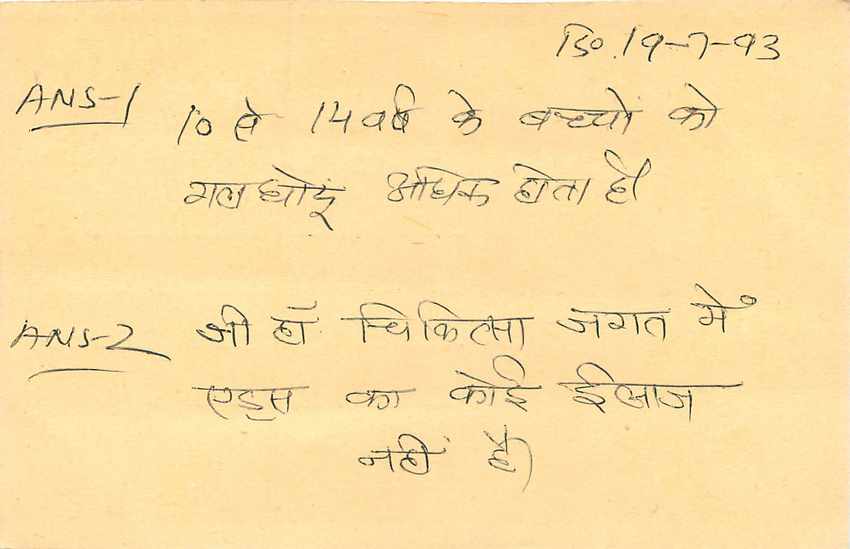 दि० 19-7-93
ANS-1 10 से 14 वर्ष के बच्चों को
गल घोटू अधिक होता है।
ANS-2 जी हाँ चिकित्सा जगत में
एड्स का कोई ईलाज
नहीं है।